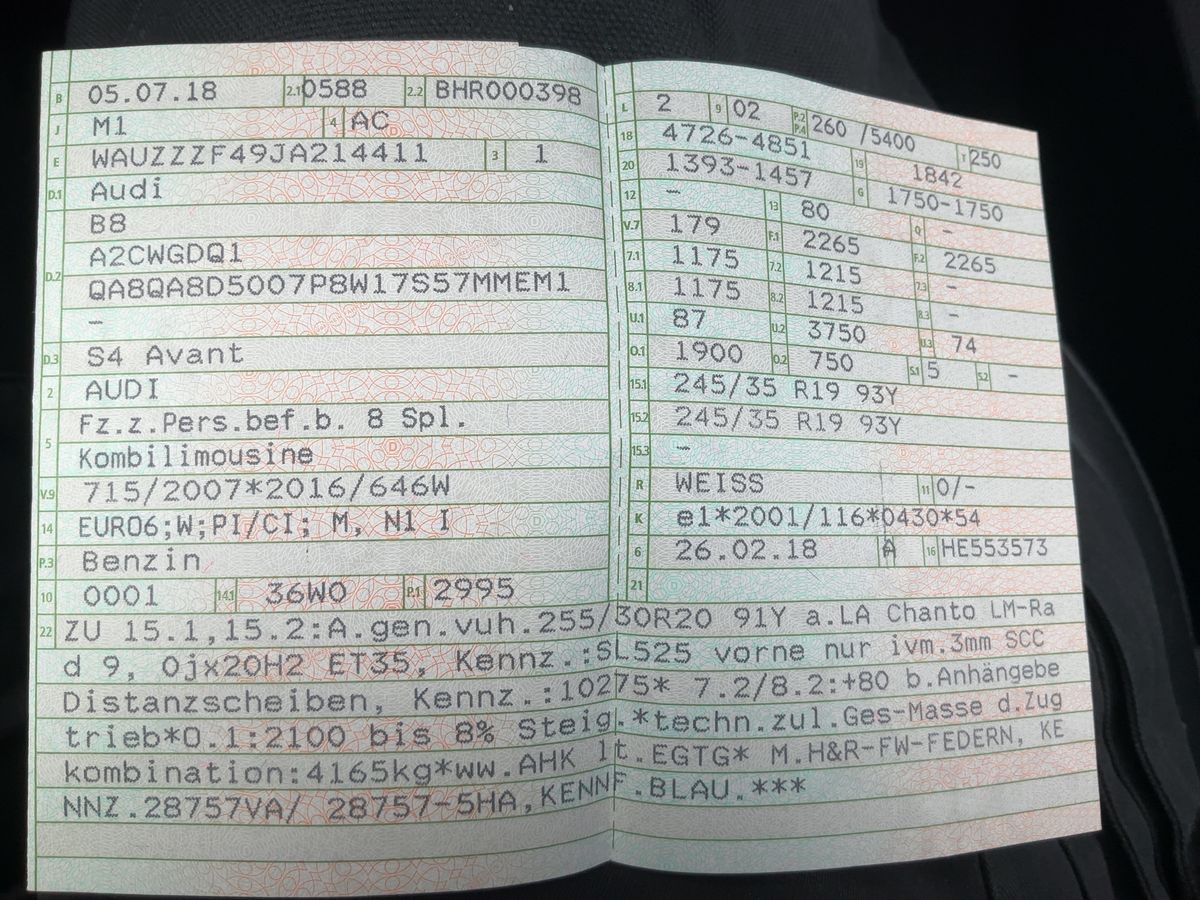 B 05.07.18 2.1 0588 2.2 BHR000398
J M1 4 AC
E WAUZZZF49JA214411 3 1
D.1 Audi
B8
D.2 A2CWGDQ1
QA8QA8D5007P8W17S57MMEM1
–
D.3 S4 Avant
2 AUDI
5 Fz.z.Pers.bef.b. 8 Spl.
Kombilimousine
V.9 715/2007*2016/646W
14 EURO6;W;PI/CI; M, N1 I
P.3 Benzin
10 0001 14.1 36W0 P.1 2995
L 2 9 02 P.2 P.4 260 /5400 T 250
18 4726-4851 19 1842
20 1393-1457 G 1750-1750
12 – 13 80 Q –
V.7 179 F.1 2265 F.2 2265
7.1 1175 7.2 1215 7.3 –
8.1 1175 8.2 1215 8.3 –
U.1 87 U.2 3750 U.3 74
O.1 1900 O.2 750 S.1 5 S.2 –
15.1 245/35 R19 93Y
15.2 245/35 R19 93Y
15.3 –
R WEISS 11 0/-
K e1*2001/116*0430*54
6 26.02.18 A 16 HE553573
21
22 ZU 15.1,15.2:A.gen.vuh.255/30R20 91Y a.LA Chanto LM-Ra
d 9, 0jx20H2 ET35, Kennz.:SL525 vorne nur ivm.3mm SCC
Distanzscheiben, Kennz.:10275* 7.2/8.2:+80 b.Anhängebe
trieb*O.1:2100 bis 8% Steig.*techn.zul.Ges-Masse d.Zug
kombination:4165kg*ww.AHK lt.EGTG* M.H&R-FW-FEDERN, KE
NNZ.28757VA/ 28757-5HA,KENNF.BLAU.***